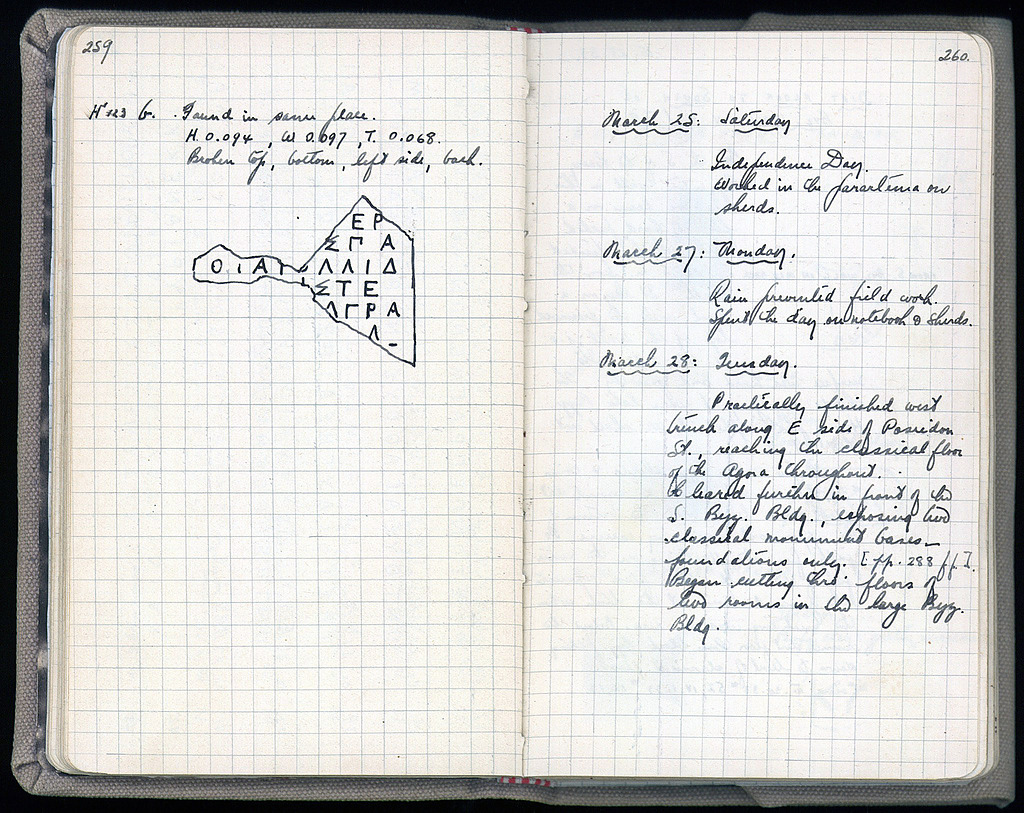 259
№ 123 6. Found in same place.
H. 0.094, W 0.097, T. 0.068.
Broken top, bottom, left side, back.
ΕΡ
ΣΓΑ
ΟΙΑΓΙΛΛΙΔ
ΣΤΕ
ΛΓΡΑ
Λ
260.
March 25: Saturday
Independence Day.
Worked in the parartema on
sherds.
March 27: Monday.
Rain prevented field work.
Spent the day on notebook & sherds.
March 28: Tuesday.
Practically finished west
trench along E side of Poseidon
St., reaching the classical floor
of the Agora throughout.
Cleared further in front of the
S. Byz. Bldg., exposing two
classical monument bases—
foundations only. [pp. 288 ff].
Began cutting thro' floors of
two rooms in the large Byz.
Bldg.